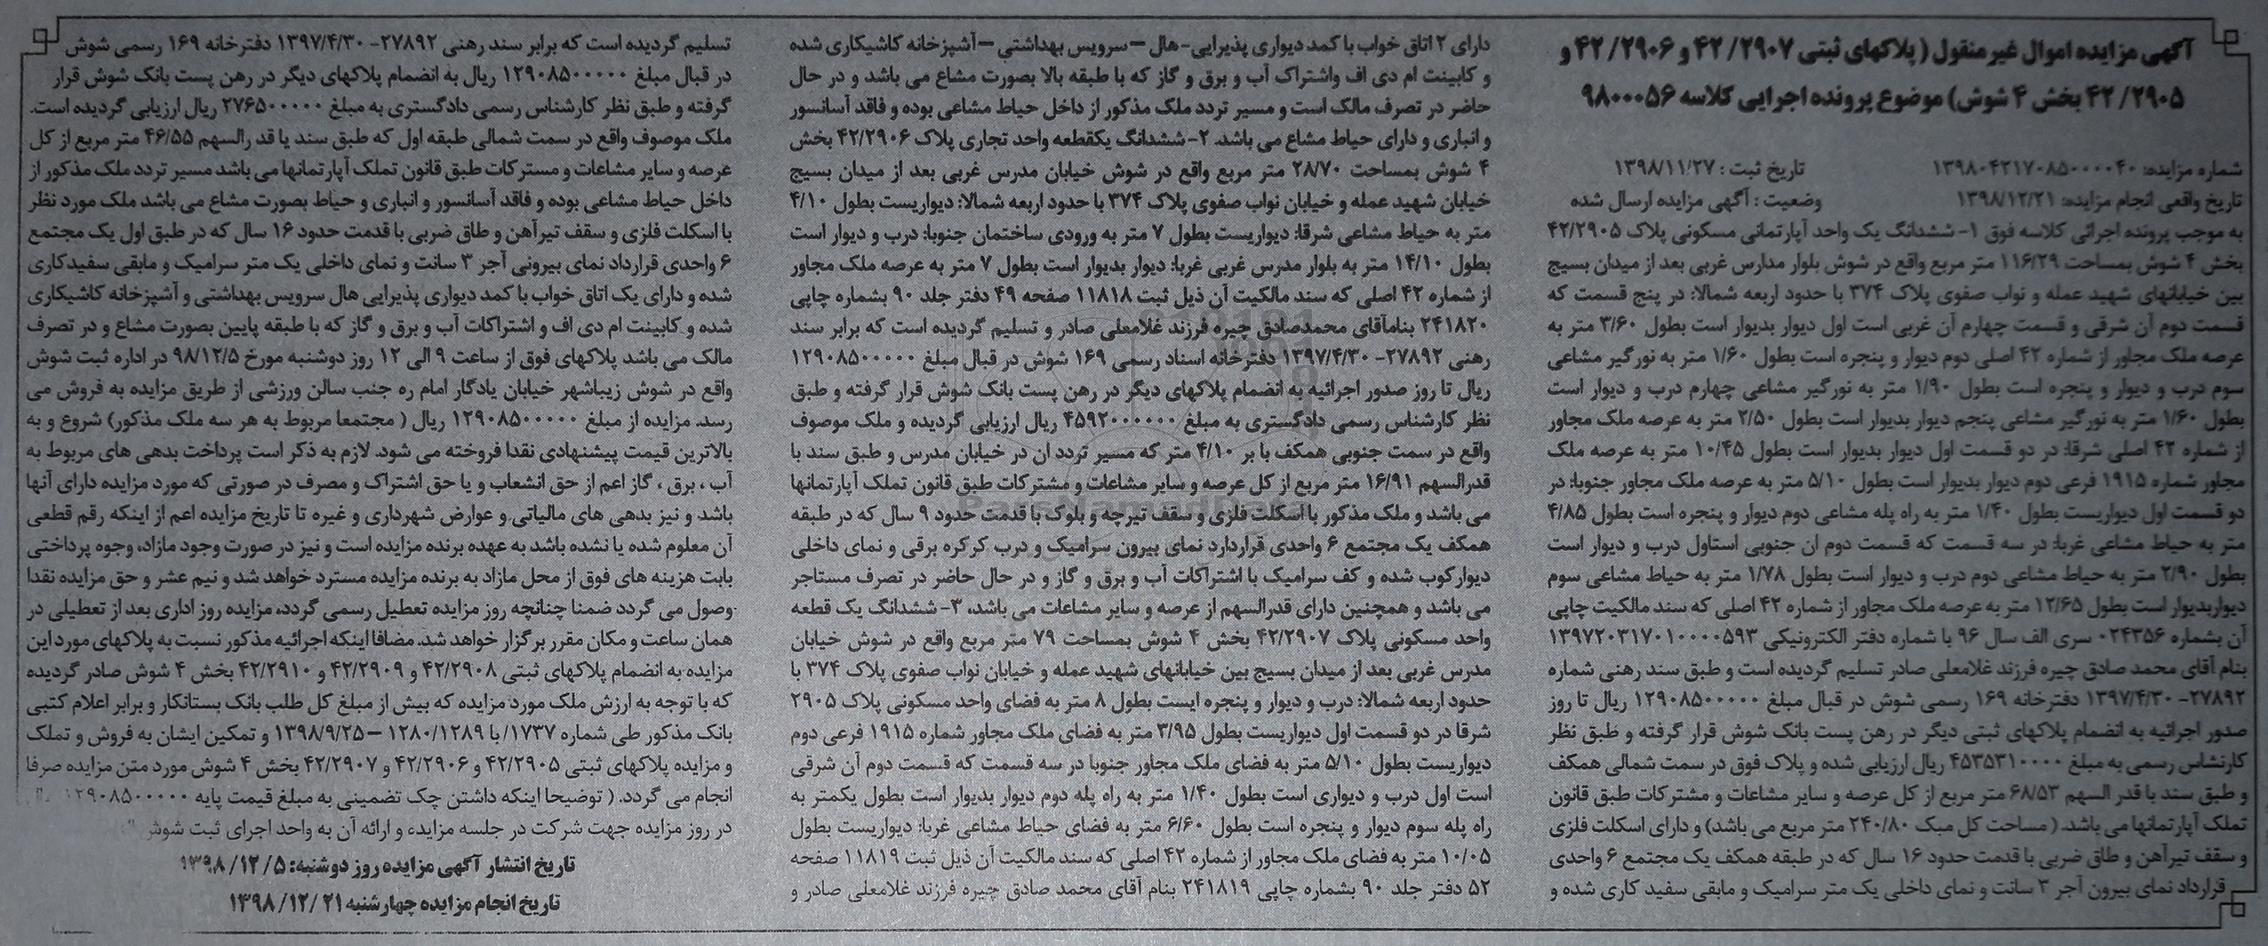 آگهی مزایده اموال غیر منقول (پلاکهای ثبتی ۴۲/۲۹۰۷ و ۴۲/۲۹۰۶ و
۴۲/۲۹۰۵ بخش ۴ شوش) موضوع پرونده اجرایی کلاسه ۹۸۰۰۰۵۶
شماره مزایده: ۱۳۹۸۰۴۲۱۷۰۸۵۰۰۰۰۴۰ تاریخ ثبت : ۱۳۹۸/۱۱/۲۷
تاریخ واقعی انجام مزایده: ۱۳۹۸/۱۲/۲۱ وضعیت : آگهی مزایده ارسال شده
به موجب پرونده اجرائی کلاسه فوق ۱- ششدانگ یک واحد آپارتمانی مسکونی پلاک ۴۲/۲۹۰۵
بخش ۴ شوش بمساحت ۱۱۶/۲۹ متر مربع واقع در شوش بلوار مدارس غربی بعد از میدان بسیج
بین خیابانهای شهید عمله و نواب صفوی پلاک ۳۷۴ با حدود اربعه شمالا: در پنج قسمت که
قسمت دوم آن شرقی و قسمت چهارم آن غربی است اول دیوار بدیوار است بطول ۳/۶۰ متر به
عرصه ملک مجاور از شماره ۴۲ اصلی دوم دیوار و پنجره است بطول ۱/۶۰ متر به نورگیر مشاعی
سوم درب و دیوار و پنجره است بطول ۱/۹۰ متر به نورگیر مشاعی چهارم درب و دیوار است
بطول ۱/۶۰ متر به نورگیر مشاعی پنجم دیوار بدیوار است بطول ۲/۵۰ متر به عرصه ملک مجاور
از شماره ۴۲ اصلی شرقا: در دو قسمت اول دیوار بدیوار است بطول ۱۰/۴۵ متر به عرصه ملک
مجاور شماره ۱۹۱۵ فرعی دوم دیوار بدیوار است بطول ۵/۱۰ متر به عرصه ملک مجاور جنوبا: در
دو قسمت اول دیواریست بطول ۱/۴۰ متر به راه پله مشاعی دوم دیوار و پنجره است بطول ۴/۸۵
متر به حیاط مشاعی غربا: در سه قسمت که قسمت دوم ان جنوبی استاول درب و دیوار است
بطول ۲/۹۰ متر به حیاط مشاعی دوم درب و دیوار است بطول ۱/۷۸ متر به حیاط مشاعی سوم
دیواربدیوار است بطول ۱۲/۶۵ متر به عرصه ملک مجاور از شماره ۴۲ اصلی که سند مالکیت چاپی
آن بشماره ۰۲۴۳۵۶ سری الف سال ۹۶ با شماره دفتر الکترونیکی ۱۳۹۷۲۰۳۱۷۰۱۰۰۰۰۵۹۳
بنام آقای محمد صادق چیره فرزند غلامعلی صادر تسلیم گردیده است و طبق سند رهنی شماره
۲۷۸۹۲- ۱۳۹۷/۴/۳۰ دفترخانه ۱۶۹ رسمی شوش در قبال مبلغ ۱۲۹۰۸۵۰۰۰۰۰ ریال تا روز
صدور اجرائیه به انضمام پلاکهای ثبتی دیگر در رهن پست بانک شوش قرار گرفته و طبق نظر
کارنشاس رسمی به مبلغ ۴۵۳۵۳۱۰۰۰۰ ریال ارزیابی شده و پلاک فوق در سمت شمالی همکف
و طبق سند با قدر السهم ۶۸/۵۳ متر مربع از کل عرصه و سایر مشاعات و مشترکات طبق قانون
تملک آپارتمانها می باشد. ( مساحت کل مبک ۲۴۰/۸۰ متر مربع می باشد) و دارای اسکلت فلزی
و سقف تیرآهن و طاق ضربی با قدمت حدود ۱۶ سال که در طبقه همکف یک مجتمع ۶ واحدی
قرارداد نمای بیرون آجر ۳ سانت و نمای داخلی یک متر سرامیک و مابقی سفید کاری شده و
دارای ۲ اتاق خواب با کمد دیواری پذیرایی-هال –سرویس بهداشتی –آشپزخانه کاشیکاری شده
و کابینت ام دی اف واشتراک آب و برق و گاز که با طبقه بالا بصورت مشاع می باشد و در حال
حاضر در تصرف مالک است و مسیر تردد ملک مذکور از داخل حیاط مشاعی بوده و فاقد آسانسور
و انباری و دارای حیاط مشاع می باشد. ۲- ششدانگ یکقطعه واحد تجاری پلاک ۴۲/۲۹۰۶ بخش
۴ شوش بمساحت ۲۸/۷۰ متر مربع واقع در شوش خیابان مدرس غربی بعد از میدان بسیج
خیابان شهید عمله و خیابان نواب صفوی پلاک ۳۷۴ با حدود اربعه شمالا: دیواریست بطول ۴/۱۰
متر به حیاط مشاعی شرقا: دیواریست بطول ۷ متر به ورودی ساختمان جنوبا: درب و دیوار است
بطول ۱۴/۱۰ متر به بلوار مدرس غربی غربا: دیوار بدیوار است بطول ۷ متر به عرصه ملک مجاور
از شماره ۴۲ اصلی که سند مالکیت آن ذیل ثبت ۱۱۸۱۸ صفحه ۴۹ دفتر جلد ۹۰ بشماره چاپی
۲۴۱۸۲۰ بنامآقای محمدصادق چیره فرزند غلامعلی صادر و تسلیم گردیده است که برابر سند
رهنی ۲۷۸۹۲- ۱۳۹۷/۴/۳۰ دفترخانه اسناد رسمی ۱۶۹ شوش در قبال مبلغ ۱۲۹۰۸۵۰۰۰۰۰
ریال تا روز صدور اجرائیه به انضمام پلاکهای دیگر در رهن پست بانک شوش قرار گرفته و طبق
نظر کارشناس رسمی دادگستری به مبلغ ۴۵۹۲۰۰۰۰۰۰ ریال ارزیابی گردیده و ملک موصوف
واقع در سمت جنوبی همکف با بر ۴/۱۰ متر که مسیر تردد ان در خیابان مدرس و طبق سند با
قدرالسهم ۱۶/۹۱ متر مربع از کل عرصه و سایر مشاعات و مشترکات طبق قانون تملک آپارتمانها
می باشد و ملک مذکور با اسکلت فلزی و سقف تیرچه و بلوک با قدمت حدود ۹ سال که در طبقه
همکف یک مجتمع ۶ واحدی قراردارد نمای بیرون سرامیک و درب کرکره برقی و نمای داخلی
دیوارکوب شده و کف سرامیک با اشتراکات آب و برق و گاز و در حال حاضر در تصرف مستاجر
می باشد و همچنین دارای قدرالسهم از عرصه و سایر مشاعات می باشد. ۳- ششدانگ یک قطعه
واحد مسکونی پلاک ۴۲/۲۹۰۷ بخش ۴ شوش بمساحت ۷۹ متر مربع واقع در شوش خیابان
مدرس غربی بعد از میدان بسیج بین خیابانهای شهید عمله و خیابان نواب صفوی پلاک ۳۷۴ با
حدود اربعه شمالا: درب و دیوار و پنجره ایست بطول ۸ متر به فضای واحد مسکونی پلاک ۲۹۰۵
شرقا در دو قسمت اول دیواریست بطول ۳/۹۵ متر به فضای ملک مجاور شماره ۱۹۱۵ فرعی دوم
دیواریست بطول ۵/۱۰ متر به فضای ملک مجاور جنوبا در سه قسمت که قسمت دوم آن شرقی
است اول درب و دیواری است بطول ۱/۴۰ متر به راه پله دوم دیوار بدیوار است بطول یکمتر به
راه پله سوم دیوار و پنجره است بطول ۶/۶۰ متر به فضای حیاط مشاعی غربا: دیواریست بطول
۱۰/۰۵ متر به فضای ملک مجاور از شماره ۴۲ اصلی که سند مالکیت آن ذیل ثبت ۱۱۸۱۹ صفحه
۵۲ دفتر جلد ۹۰ بشماره چاپی ۲۴۱۸۱۹ بنام آقای محمد صادق چیره فرزند غلامعلی صادر و
تسلیم گردیده است که برابر سند رهنی ۲۷۸۹۲- ۱۳۹۷/۴/۳۰ دفترخانه ۱۶۹ رسمی شوش
در قبال مبلغ ۱۲۹۰۸۵۰۰۰۰۰ ریال به انضمام پلاکهای دیگر در رهن پست بانک شوش قرار
گرفته و طبق نظر کارشناس رسمی دادگستری به مبلغ ۲۷۶۵۰۰۰۰۰ ریال ارزیابی گردیده است.
ملک موصوف واقع در سمت شمالی طبقه اول که طبق سند یا قد رالسهم ۴۶/۵۵ متر مربع از کل
عرصه و سایر مشاعات و مسترکات طبق قانون تملک آپارتمانها می باشد مسیر تردد ملک مذکور از
داخل حیاط مشاعی بوده و فاقد آسانسور و انباری و حیاط بصورت مشاع می باشد ملک مورد نظر
با اسکلت فلزی و سقف تیرآهن و طاق ضربی با قدمت حدود ۱۶ سال که در طبق اول یک مجتمع
۶ واحدی قرارداد نمای بیرونی آجر ۳ سانت و نمای داخلی یک متر سرامیک و مابقی سفیدکاری
شده و دارای یک اتاق خواب با کمد دیواری پذیرایی هال سرویس بهداشتی و آشپزخانه کاشیکاری
شده و کابینت ام دی اف و اشتراکات آب و برق و گاز که با طبقه پایین بصورت مشاع و در تصرف
مالک می باشد پلاکهای فوق از ساعت ۹ الی ۱۲ روز دوشنبه مورخ ۹۸/۱۲/۵ در اداره ثبت شوش
واقع در شوش زیباشهر خیابان یادگار امام ره جنب سالن ورزشی از طریق مزایده به فروش می
رسد. مزایده از مبلغ ۱۲۹۰۸۵۰۰۰۰۰ ریال ( مجتمعا مربوط به هر سه ملک مذکور) شروع و به
بالاترین قیمت پیشنهادی نقدا فروخته می شود. لازم به ذکر است پرداخت بدهی های مربوط به
آب ، برق ، گاز اعم از حق انشعاب و یا حق اشتراک و مصرف در صورتی که مورد مزایده دارای آنها
باشد و نیز بدهی های مالیاتی و عوارض شهرداری و غیره تا تاریخ مزایده اعم از اینکه رقم قطعی
آن معلوم شده یا نشده باشد به عهده برنده مزایده است و نیز در صورت وجود مازاد، وجوه پرداختی
بابت هزینه های فوق از محل مازاد به برنده مزایده مسترد خواهد شد و نیم عشر و حق مزایده نقدا
وصول می گردد ضمنا چنانچه روز مزایده تعطیل رسمی گردد، مزایده روز اداری بعد از تعطیلی در
همان ساعت و مکان مقرر برگزار خواهد شد. مضافا اینکه اجرائیه مذکور نسبت به پلاکهای مورد این
مزایده به انضمام پلاکهای ثبتی ۴۲/۲۹۰۸ و ۴۲/۲۹۰۹ و ۴۲/۲۹۱۰ بخش ۴ شوش صادر گردیده
که با توجه به ارزش ملک مورد مزایده که بیش از مبلغ کل طلب بانک بستانکار و برابر اعلام کتبی
بانک مذکور طی شماره ۱۷۳۷/با ۱۲۸۰/۱۲۸۹ –۱۳۹۸/۹/۲۵ و تمکین ایشان به فروش و تملک
و مزایده پلاکهای ثبتی ۴۲/۲۹۰۵ و ۴۲/۲۹۰۶ و ۴۲/۲۹۰۷ بخش ۴ شوش مورد متن مزایده صرفا
انجام می گردد. ( توضیحا اینکه داشتن چک تضمینی به مبلغ قیمت پایه ۱۲۹۰۸۵۰۰۰۰۰
در روز مزایده جهت شرکت در جلسه مزایده و ارائه آن به واحد اجرای ثبت شوش
تاریخ انتشار آگهی مزایده روز دوشنبه: ۱۳۹۸/۱۲/۵
تاریخ انجام مزایده چهارشنبه ۱۳۹۸/۱۲/۲۱